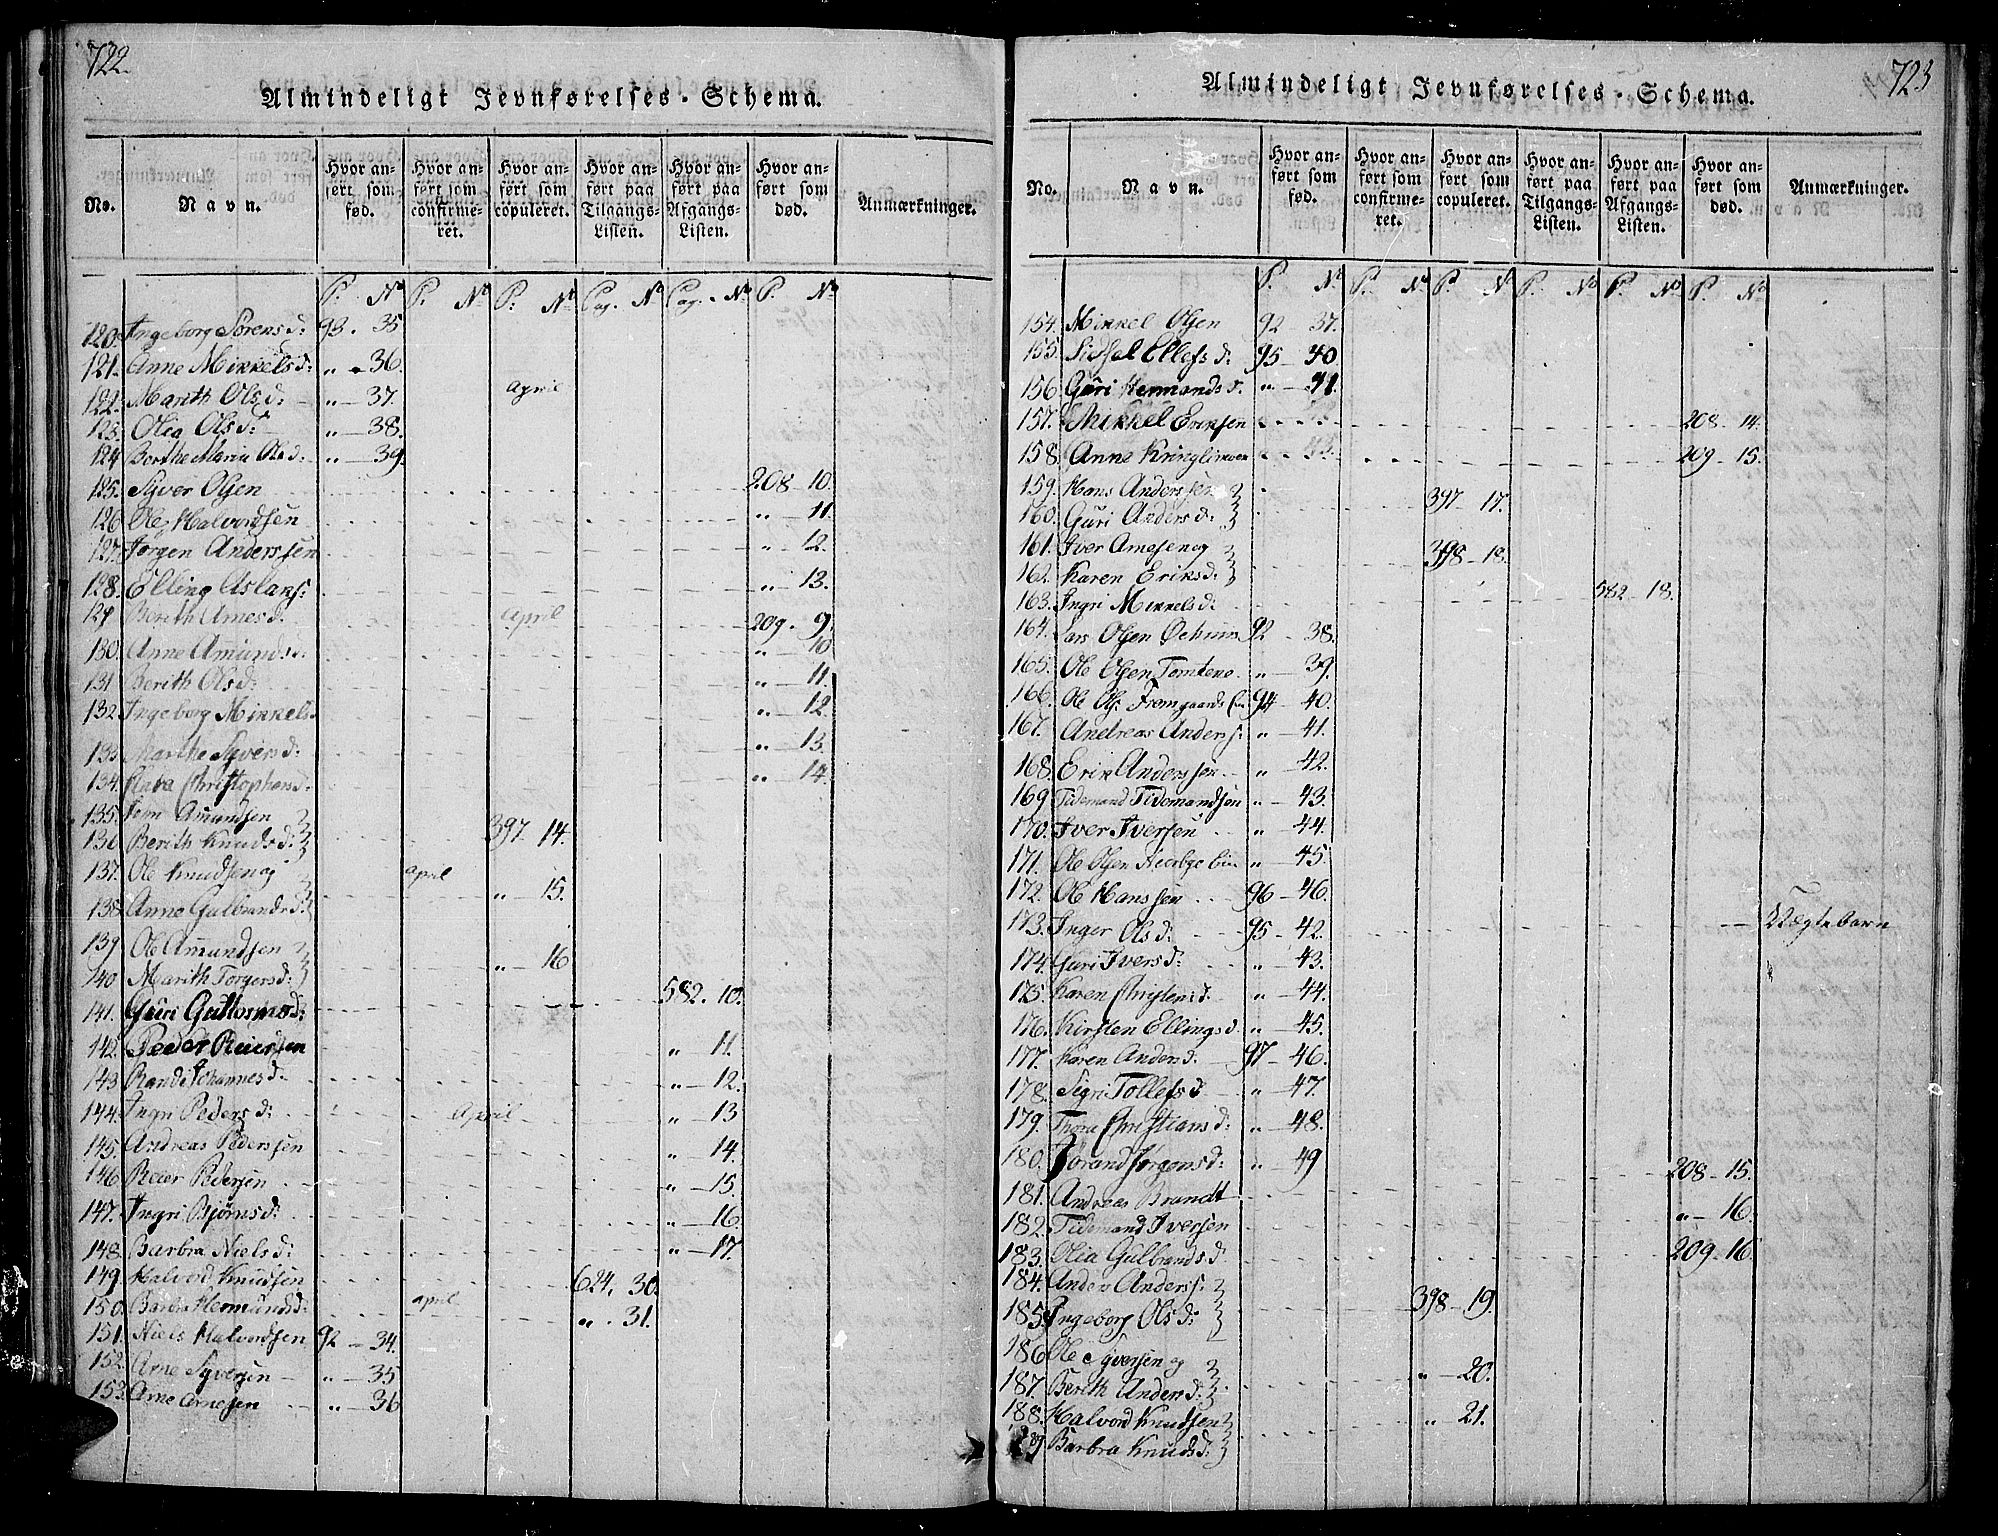 722.
Almindeligt Jevnførelses-Schema.
No. Navn. Hvor anført som fød. Hvor anført som confirmeret. Hvor anført som copuleret. Hvor anført paa Tilgangs-Listen. Hvor anført paa Afgangs-Listen. Hvor anført som død. Anmærkninger.
P. No P. No P: No Pag. No Pag. No P. No
120. Ingeborg Sørensd: 93. 35
121. Anne Mikkelsd: " 36.
122. Marith Olsd: " 37. april
123. Olia Olsd: " 38.
124 Berthe Marie Olsd: " 39.
125. Syver Olsen 208 10.
126 Ole Halvordsen " 11.
127. Jørgen Anderssen " 12.
128. Elling Aslaks: " 13.
129 Berith Arnesd. april 209. 9.
130. Anne Amundsd: " 10
131 Berith Olsd: " 11.
132. Ingeborg Mikkels. " 12.
133 Marthe Syversd: " 13.
134. Christophersd: " 14.
135. Amundsen
136 Berith Knudsd: 397 14.
137. Ole Knudsen og april
138. Anne Gulbrandsd: " 15.
139 Ole Amundsen
140 Marith Torgersd: " 16
141. Guri Guttormsd: 582. 10.
142. Peder Reiersen " 11.
143 Randi Johannesd: " 12.
144. Ingri Pedersd: April " 13
145. Andreas Pederssen " 14.
146 Reier Pedersen " 15.
147. Ingri Bjørnsd: " 16.
148. Barbra Nielsd: " 17.
149. Halvord Knudsen 624, 30.
150. Barbra Hermundsd: april " 31.
151. Niels Halvordsen 92 34.
152. Arne Syversen " 35
153. Arne Arnesen " 36
723
Almindeligt Jevnførelses-Schema.
No. Navn. Hvor anført som fød. Hvor anført som confirmeret. Hvor anført som copuleret. Hvor anført paa Tilgangs-Listen. Hvor anført paa Afgangs-Listen. Hvor anført som død. Anmærkninger.
P. No P. No P. No P. No P. No P. No
154. Mikkel Olsen 92 37.
155. Sidsel Ellefsd: 95 40
156 Guri Hermandsd. " 41.
157. Mikkel Eriksen 208 14.
158. Anne 209 15.
159. Hans Anderssen
160. Guri Andersd: 397 17.
161. Iver Arnesen og
162. Karen Eriksd: 398 18.
163. Ingri Mikkelsd: 582 18.
164. Lars Olsen 92 38.
165. Ole Olsen Tomtene " 39.
166. Ole Ols: 94 40.
167. Andreas Anders: " 41.
168. Erik Anderssen " 42.
169 Tidemand Tidemandsen " 43.
170. Iver Iversen " 44.
171. Ole Olsen " 45
172. Ole Hanssen 96 46.
173. Inger Olsd: 95 42. Uægte barn
174. Guri Iversd: " 43.
175. Karen Christensd. " 44.
176. Kirsten Ellingsd. " 45.
177. Karen Andersd: 97 46.
178. Sigri Tollefsd " 47.
179. Thora Christiansd: " 48.
180. Jørand Jørgensd: " 49
181. Andreas Brandt 208 15.
182. Tidemand Iversen " 16.
183. Olia Gulbrandsd. 209 16.
184. Anders Anderss:
185. Ingeborg Olsd: 398 19.
186 Ole Syversen og
187. Berith Andersd: " 20.
188. Halvord Knudsen
189 Barbra Knudsd: " 21.